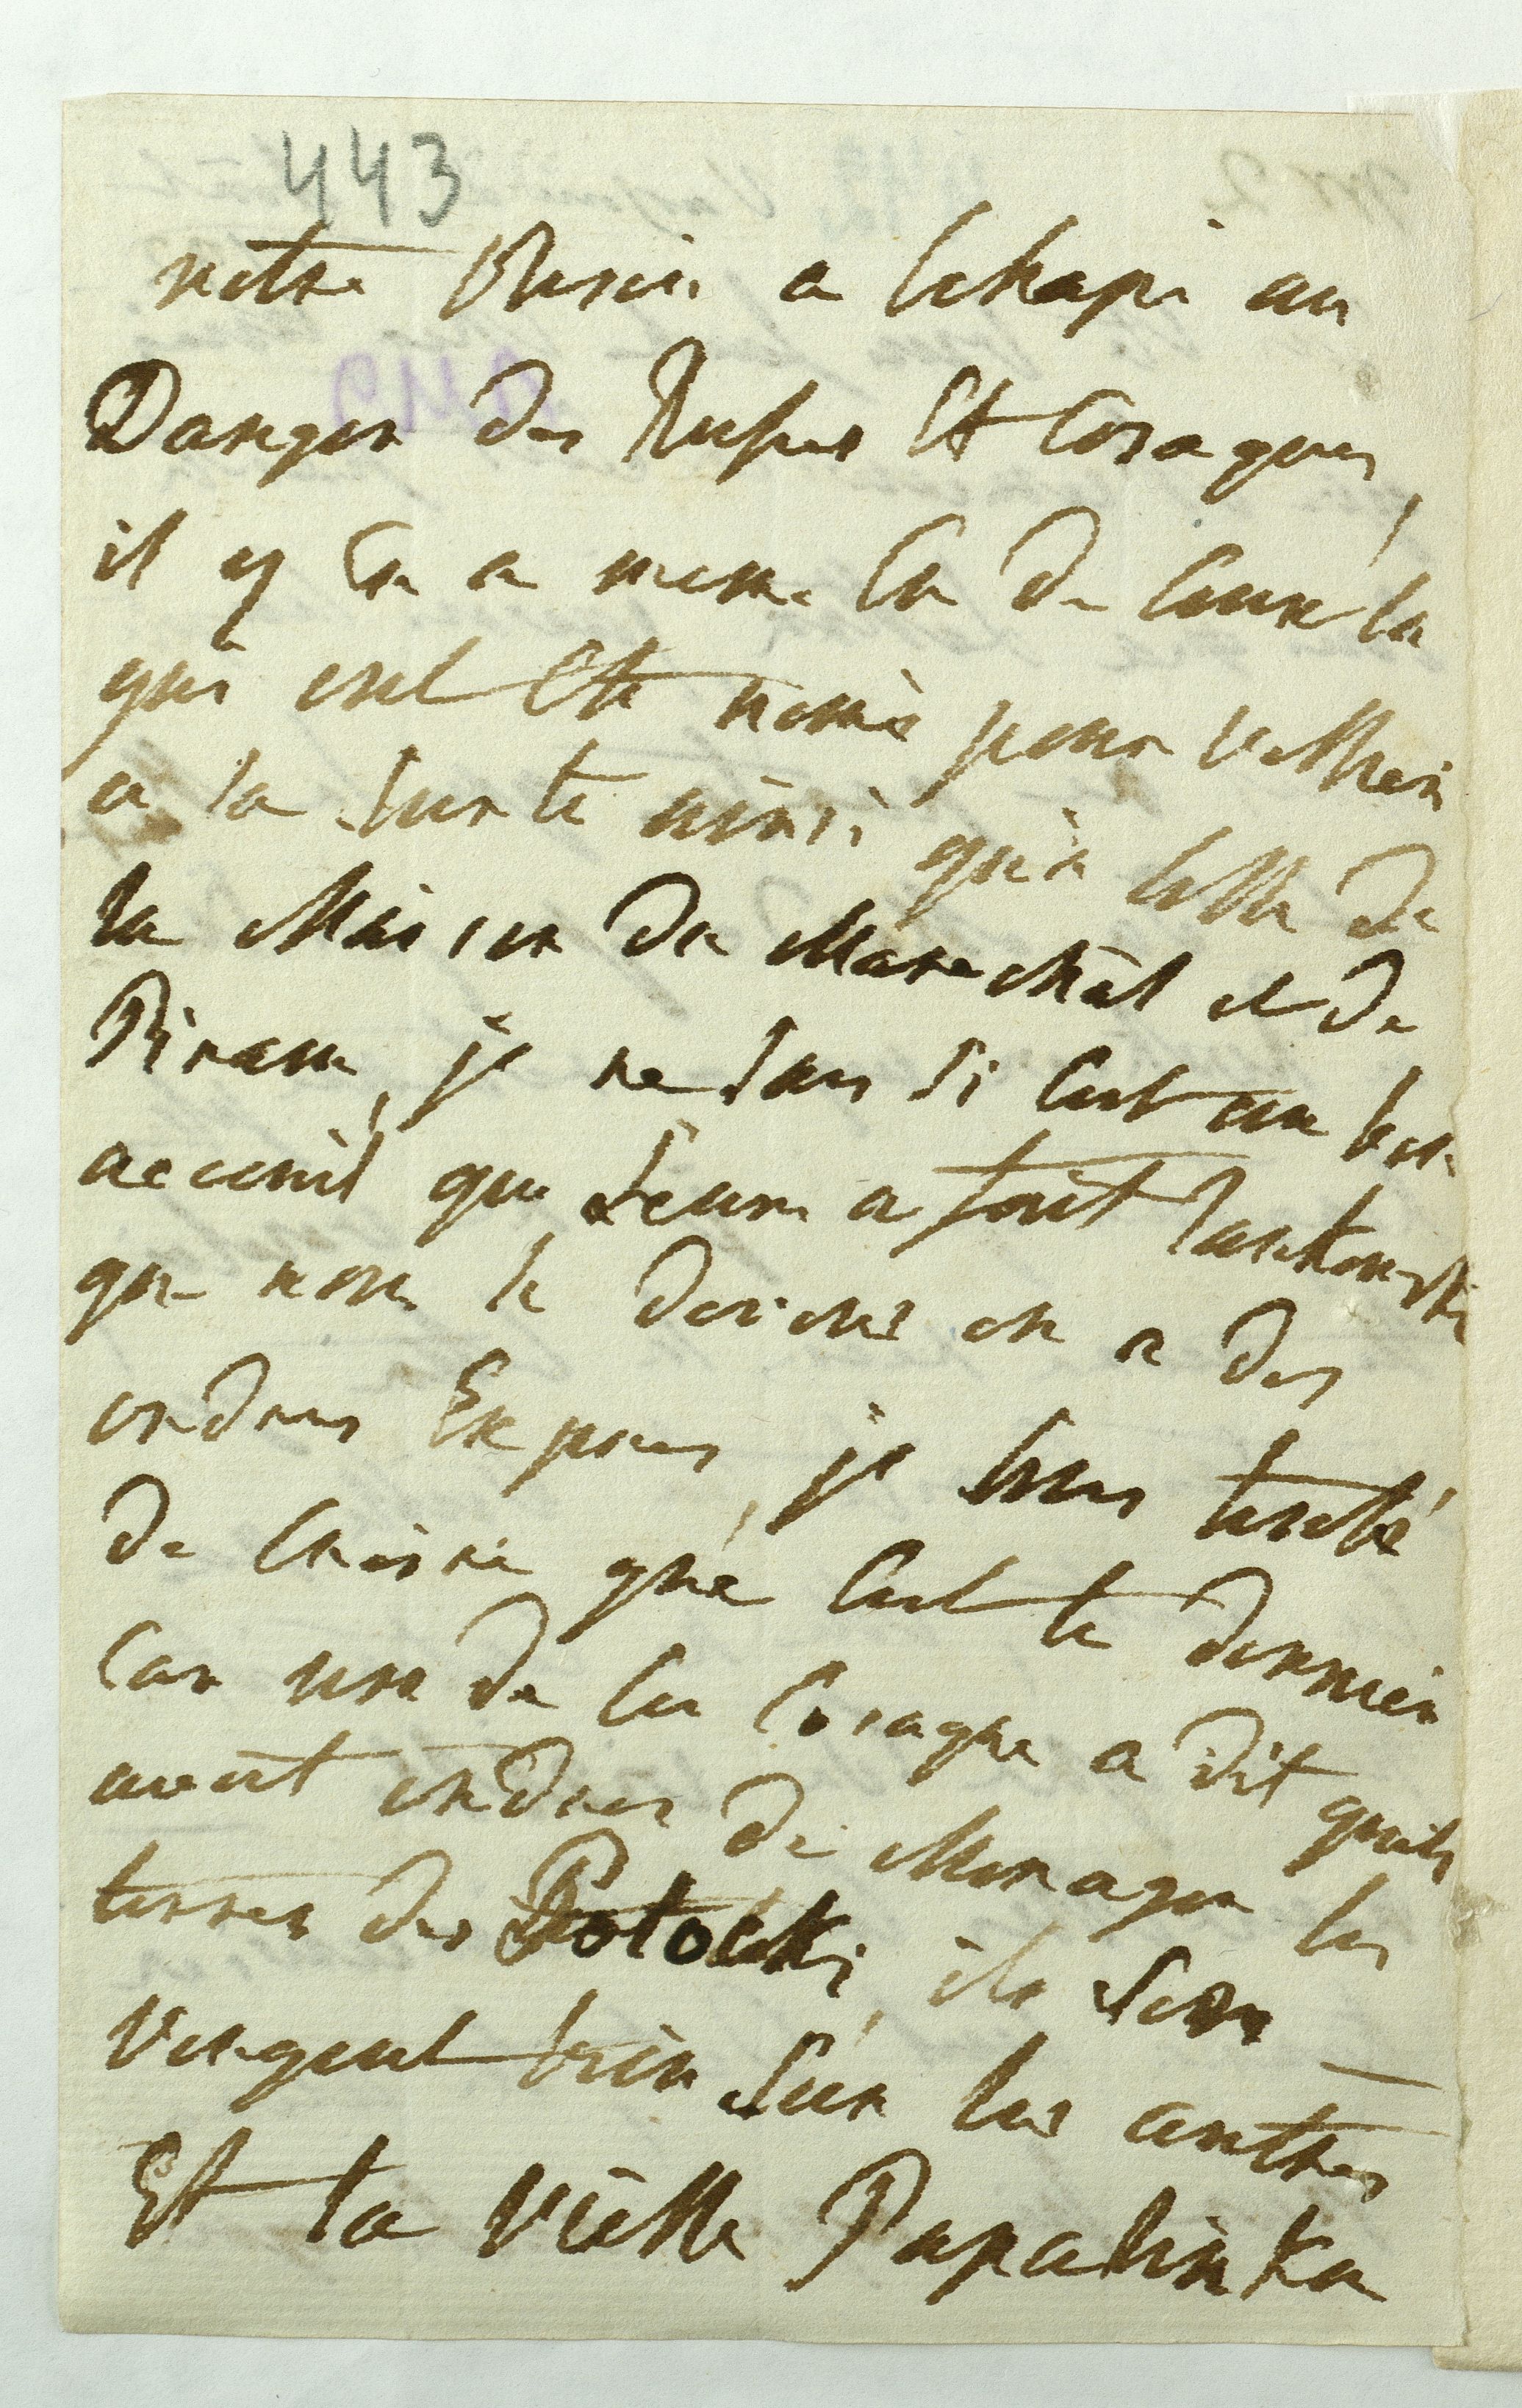 443
notre Brusi a Echapé au
Danger des Russes Et Cosaques,
il y En a meme En de Ceux la
qui ont Ete nomé pour veller
a la Surete ainsi qu'a celle de
la Maison du Marechal et de
je ne sais si Cest un bon
accueil que Leur a fait
que nous le devons ou a des
ordres Exprès, je suis tenté
de Croire que Cest le dernier
Car un de Ces Cosaque a dit quils
avoit ordres de Menager les
terres des Potocki, ils Sen
vengent bien Sur les autres
Et la vielle Papalinka